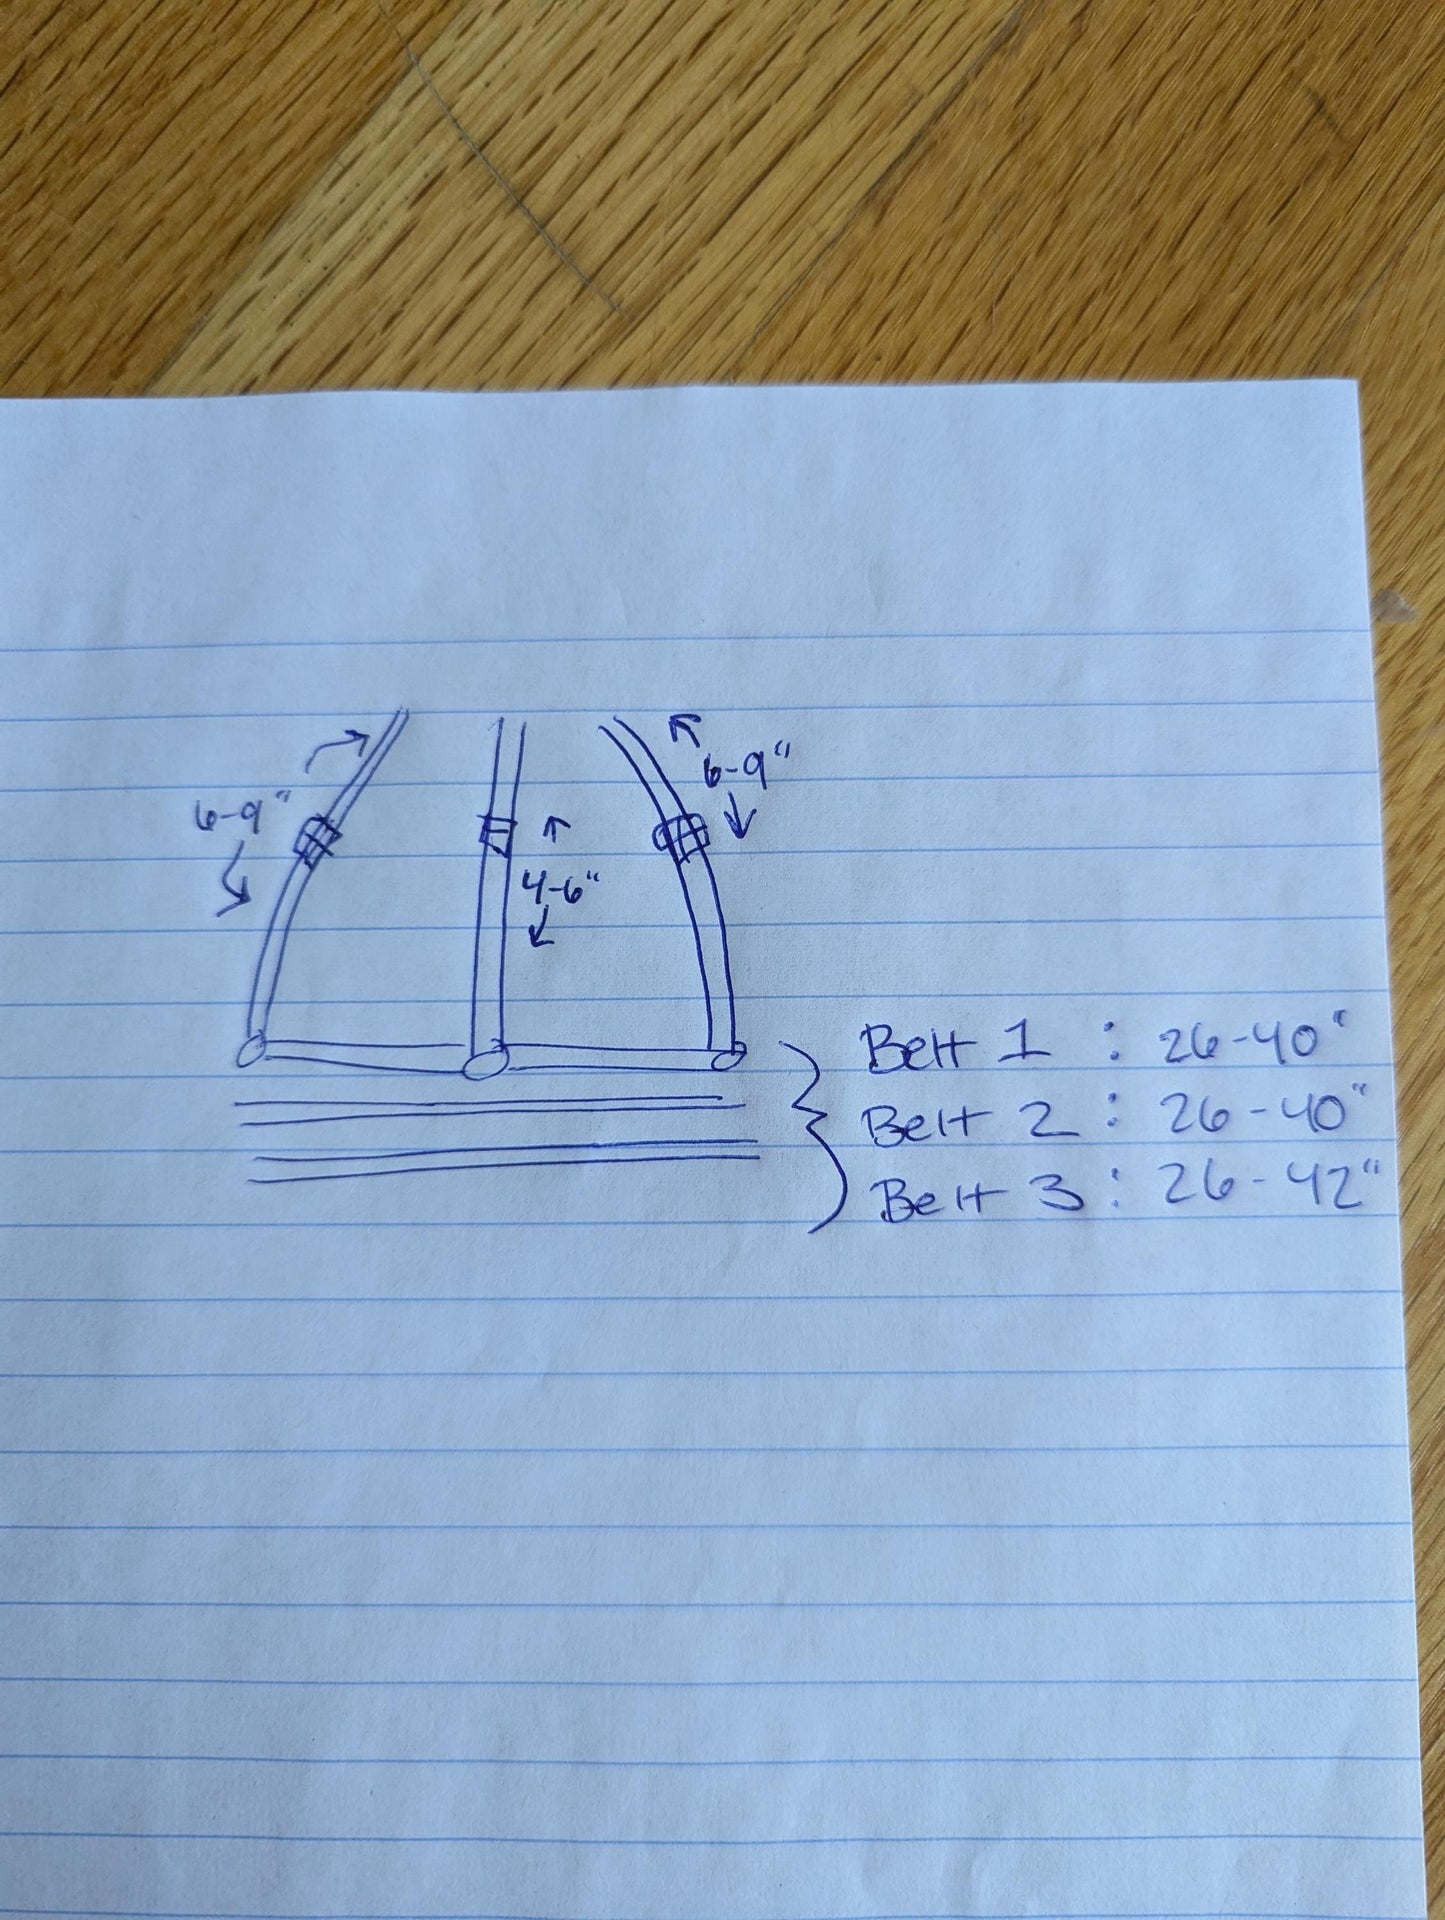 6-9"
6-9"
4-6"
Belt 1 : 26-40"
Belt 2 : 26-40"
Belt 3 : 26-42"